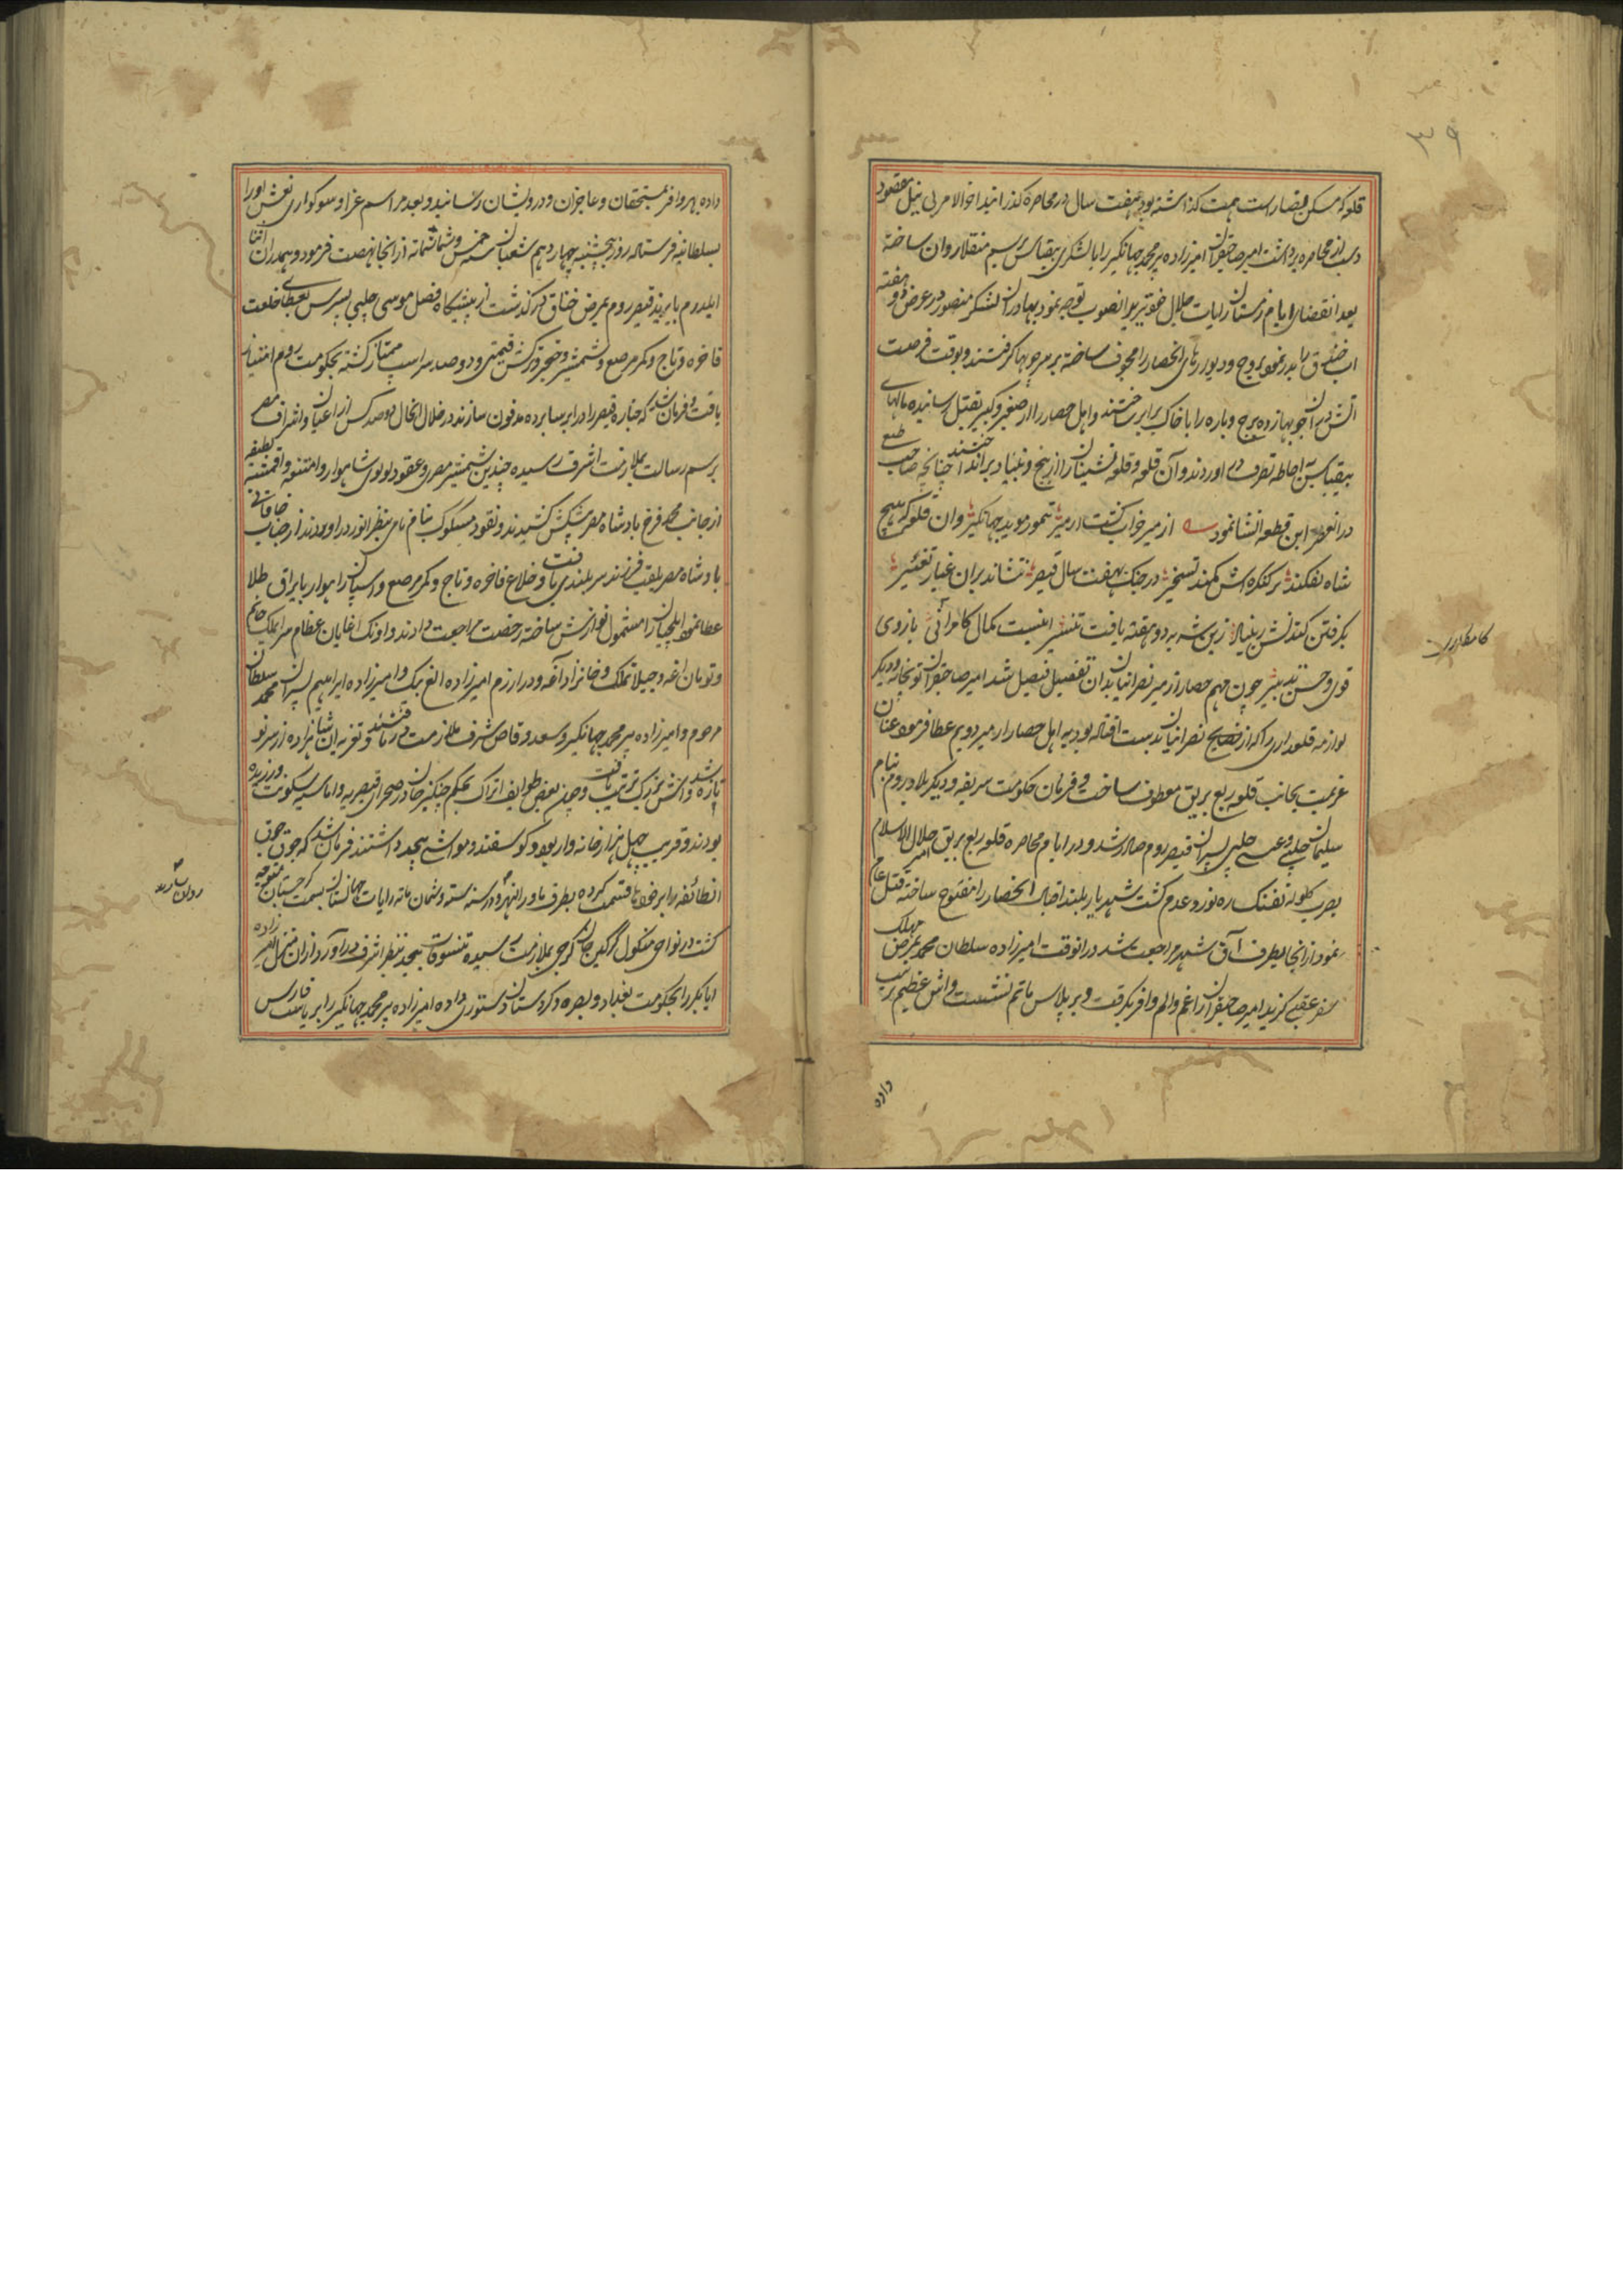 ۳۹
قلوکه مسکن قیصار است همت گذاشته بود هفت سال در محاصره گذرانید اخرالامر بی نیل مقصود
دست از محاصره برداشت امیر صاحبقران امیرزاده پیر محمد جهانگیر را با لشکری بیقیاس برسم منقلا روان ساخته
بعد انقضای ایام زمستان رایات جلال خود نیز بدانصوب توجه نمود بهادران لشکر منصور در عرض دو هفته
اب خندق را بدر نموده بروج و دیوارهای انحصار را مجوف ساخته بر سر چوبها گرفتند و بوقت فرصت
آتش در آن چوبها زده برج و باره را با خاک برابر ساختند و اهل حصار را از صغیر و کبیر بقتل رسانیده مالهای
بیقیاس به احاطه تصرف در اوردند و آن قلعه و قلعه نشینان را از بیخ و بنیاد برانداختند چنانچه صاحب طبع
در انوقت این قطعه انشا نمود از میر خواب گشت ارمیر تیمور موید جهانگیر وان قلعه که هیچ
شاه نفکند بر کنگره اش کمند تسخیر در جنگ بهفت سال قیصر ننشاند بران غبار تغییر
بگرفتن کندنش ز بنیاد زین شه به دو هفته یافت تیسیر اینست کمال کامرانی بازوی
قوی و حسن تدبیر چون مهم حصار ازمیر نصرانیان بدان تفصیل فیصل شد امیر صاحبقران توپخانه و دیگر
لوازمه قلعداری را که از نصرانیان بدست افتاده بود به اهل حصار ارمیر دویم عطا فرموده عنان
عزیمت بجانب قلعه ربع بریق معطوف ساخت و فرمان حکومت سریقه و دیگر بلاد روم بنام
سلیمان چلپی و عیسی چلپی پسران قیصر روم صادر شد و در ایام محاصره قلعه ربع بریق جلال الاسلام
بضرب گلوله تفنگ ره نورد عدم گشت شهریار بلند اقبال انحصار را مفتوح ساخته امر قتل عام
نمود از انجا بطرف آق شهر مراجعت شد در انوقت امیرزاده سلطان محمد بمرض مهلک
سفر عقبی گزید امیر صاحبقران را غم و الم وافر بگرفت و بر پلاس ماتم نشست و اش عظیم ترتیب
داده
داده بهره وافر بمستحقان و عاجزان و درویشان رسانید و بعد مراسم عزا و سوکواری نعش او را
بسلطانیه فرستاد روز پنجشنبه چهاردهم شعبان سنه خمس و ثمانمائه از انجا نهضت فرمود و بهمدران اثنا
ایلدرم بایزید قیصر روم بمرض خناق درگذشت از پیشگاه فضل موسی چلپی پسرش بعطای خلعت
فاخره و تاج و کمر مرصع و شمشیر و خنجر و ترکش قیمتی و دو صد سر اسپ ممتاز گشته بحکومت روم امتیاز
یافت و فرمان شد که جنازه قیصر را در ابر سا برده مدفون سازند در خلال انحال دو صد کس از اعیان و اشراف مصر
برسم رسالت بملازمت اشرف رسیده چندین شمشیر مصری و عقود لولوی شاهوار و امتعه و اقمشه لطیفه
از جانب ملک فرخ بادشاه مصر پیشکش کشیدند و نقود مسکوک بنام نامی بنظر انور در اوردند از جناب خاقانی
بادشاه مصر بلقب فرزند سربلندی یافت و خلاع فاخره و تاج و کمر مرصع و اسپان راهوار با یراق طلا
عطا نموده ایلچیان را مشمول نوازش ساخته رخصت مراجعت دادند و اونک اغایان عظام سرایملک خانم
و تومان اغه و جیلا نملک و خانزاد آغه و در ارزم امیرزاده الغ بیک و امیرزاده ابراهیم پسران محمد سلطان
مرحوم و امیرزاده پیر محمد جهانگیر و سعد وقاص شرف ملازمت دریافتند و تعزیه ان شاهزاده از سر نو
تازه شد و اش بزرگ ترتیب یافت و چون بعضی طوایف اتراک بحکم چنگیز خان در صحرای قیصریه و اماسیه سکونت ورزیده
بودند و قریب چهل هزار خانه وار بوده و گوسفند و مواشی بیحد داشتند فرمان شد که جوق جوق
انطائفه را بر خود ها قسمت کرده بطرف ماوراالنهر و در سنه سته و ثمان مائه رایات جهانستان بسمت گرجستان متوجه
گشت در نواحی منکول گرگین خان گرجی بملازمت رسیده تنسوقات بیحد بنظر اشرف در آورد از ان منزل امیرزاده
ابابکر را بحکومت بغداد و بصره و کردستان دستوری داده امیرزاده پیر محمد جهانگیر را بریاست فارس